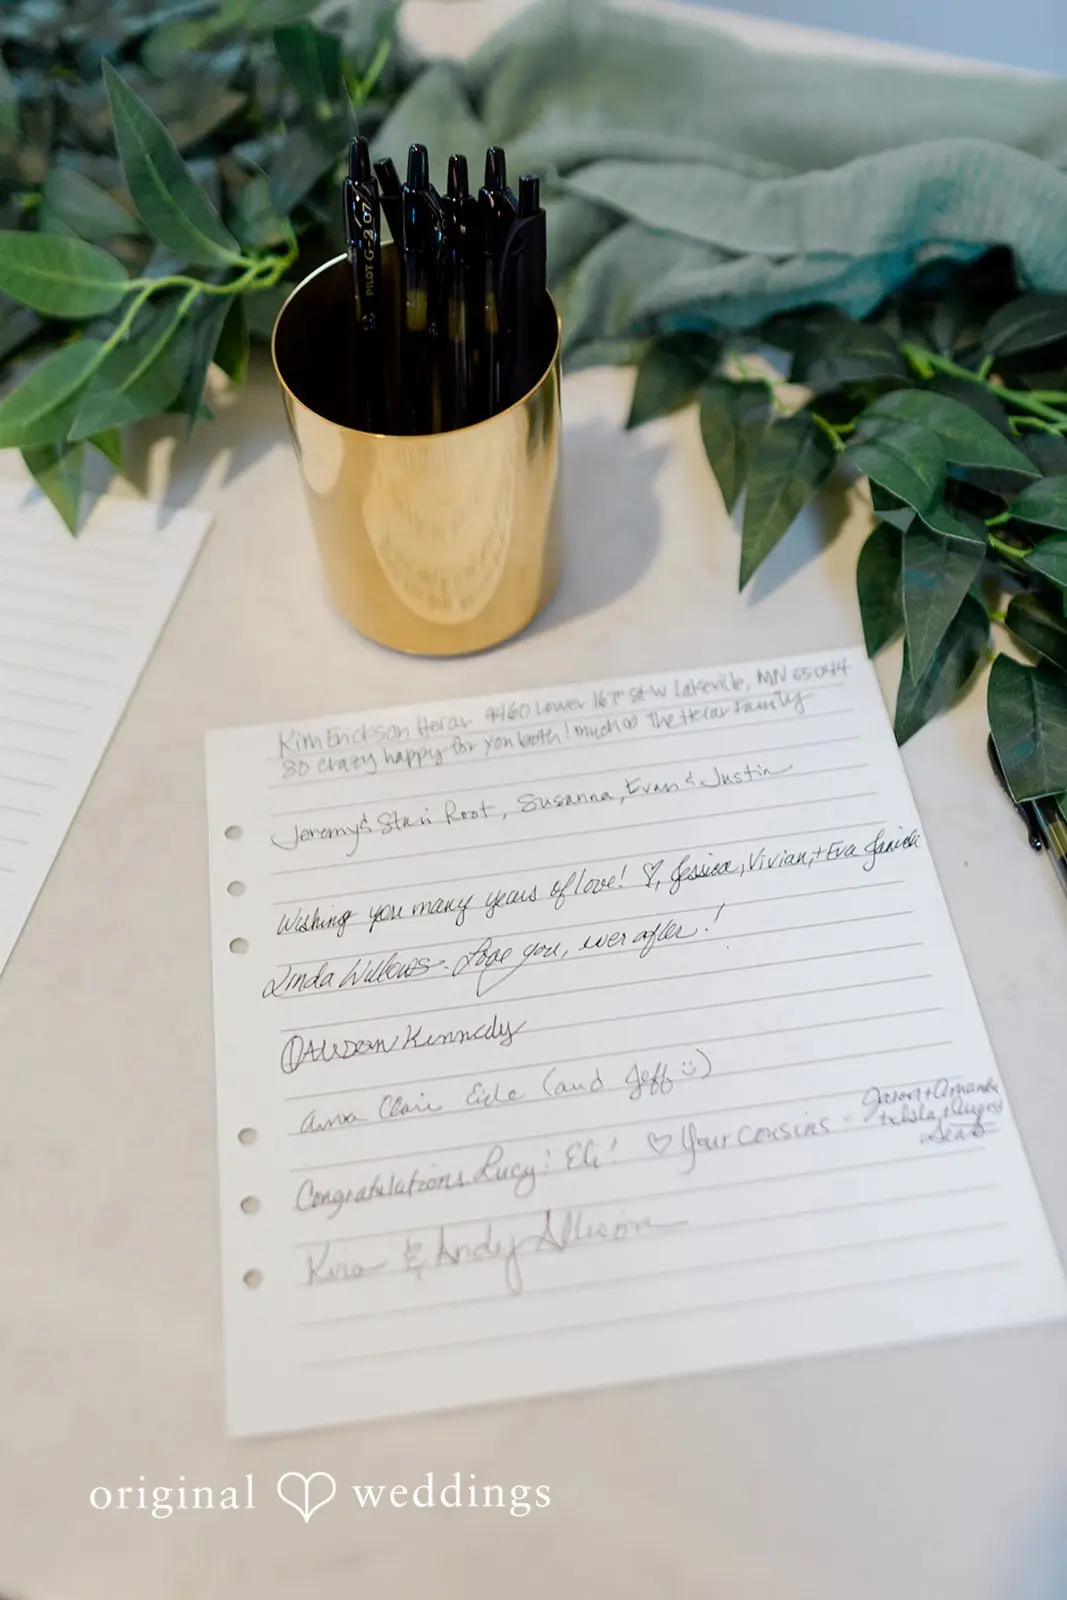 PILOT G-2 07
Kim Erickson Herar 9460 Lower 167th St W Lakeville, MN 55044
So crazy happy for you both! much ♡ The Herar Family
Jeremy & Staci Root, Susanna, Evan & Justin
Wishing you many years of love! ♡, Jessica, Vivian, + Eva
Linda Willows - Love you, ever after!
Kennedy
Anna Clair Eide (and Jeff :)
Jason + Amanda
+ August
Congratulations Lucy & Eli! ♡ Your Cousins -
& Andy Allison
original weddings